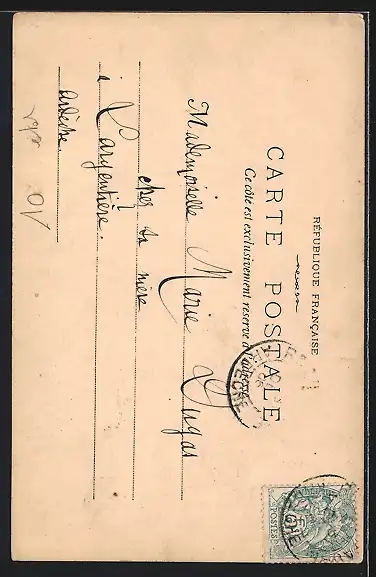 RÉPUBLIQUE FRANÇAISE
CARTE POSTALE
Ce côté est exclusivement réservé à l'adresse
Mademoiselle Marie Dugas
chez sa mère
à Largentière.
Ardèche.
POSTES